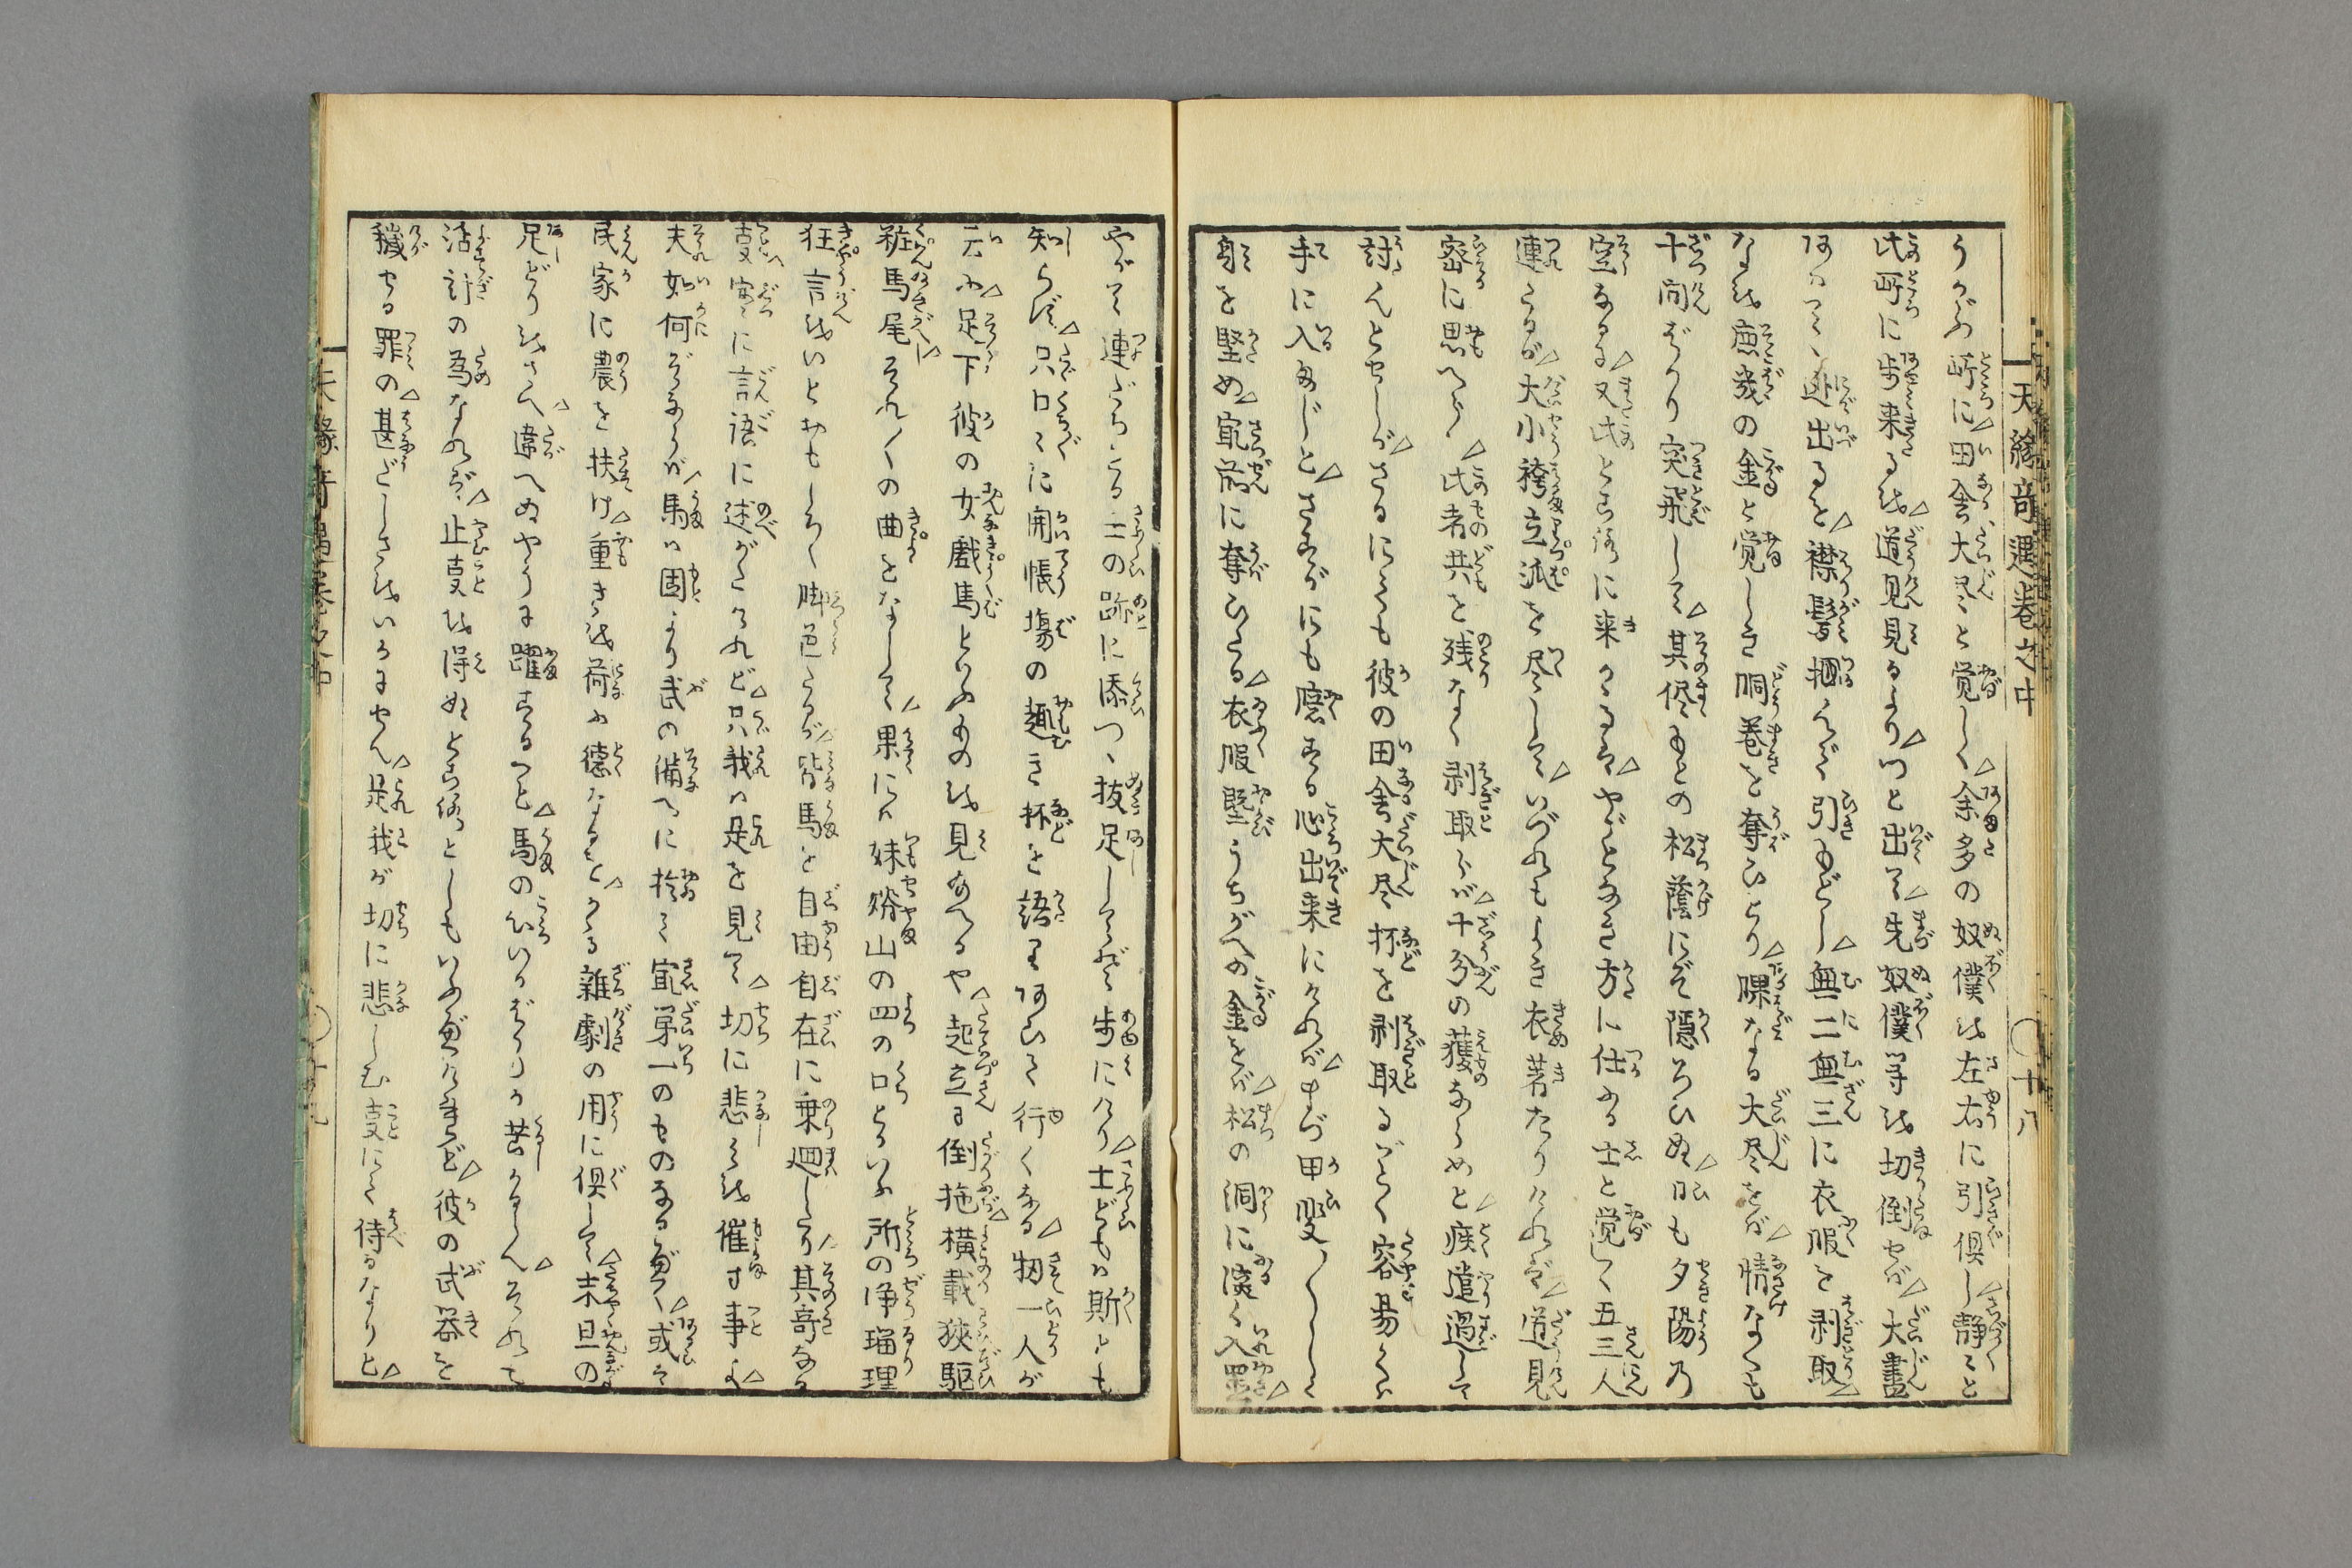 天縁奇遇巻之中
〇十八
うかゞふ所に△田舎大尽と覚しく△余多の奴僕を左右に引倶し△静々と
此所に歩来るを△道見見るより△つと出て△先奴僕等を切倒せば△大尽
あはてゝ迯出ると△襟髪掴んで引もどし△無二無三に衣服を剥取△
なを底幾の金と覚しき胴巻を奪ひとり△裸なる大尽をば△情なくも
十間ばかり突飛して△其侭もとの松蔭にぞ隠ろひぬ△日も夕陽乃
空なるに△又此ところに来かゝるは△やごとなき方に仕ふる士と覚しく五三人
連たるが△大小袴立派を尽して△いづれもよき衣著たりければ△道見
密に思へらく△此者共を残なく剥取らば△十分の獲ならめと△疾遣過して
討んとせしが△さるにても彼の田舎大尽抔を剥取るごとく容易くは
手に入まじと△さすがにも臆する心出来にければ△まづ甲斐〴〵しく
身を堅め△最前に奪ひたる△衣服堅うちがへの金をば△松の洞に深く入置△
やがて連だちたる士の跡に添つゝ抜足してぞ歩にけり△士どもは斯とも
知らず△只口々に開帳場の趣き抔を語りあひて行くなる△扨一人が
云ふ△足下彼の女戯馬といふものを見給へるや△起立ま倒拖横載狭駆
粧馬尾△それ〳〵の曲をなして△果にハ妹脊山の四の口といふ所の浄瑠理
狂言をいとおもしろく脚色たるが△皆馬を自由自在に乗廻したり△其奇なる
支実に言語に述がたけれど△只我は是を見て△切に悲しみを催す事よ△
夫如何ぞなるが△馬は固より武の備へに於て最第一のものなるが△或は
民家に農を扶け△重きを荷ふ徳なるを△かゝる雑劇の用に倶して△未旦の
足どりをさへ△違へぬやうに躍するこそ△馬の心いかばかりか苦かるらん△それも
活計の為なれば△止支を得ぬところとしもいふべけれど△彼の武器を
穢せる罪の△甚どしきをいかにせん△是我が切に悲しむ支にて侍るなりと△